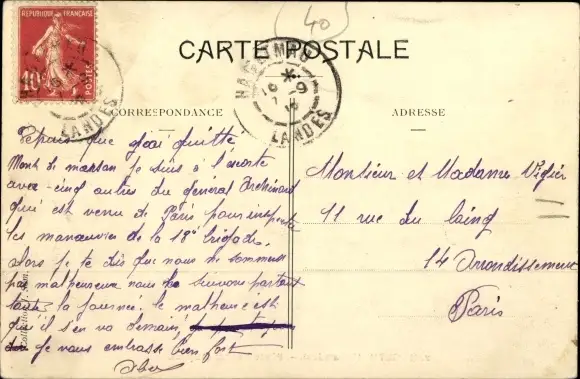 40
RÉPUBLIQUE FRANÇAISE
10
POSTES
CARTE POSTALE
LANDES
HAGETMAU
LANDES
CORRESPONDANCE
ADRESSE
Depuis que j'ai quitté
Mont de marsan je suis à l'escorte
avec cinq autres du général
qui est venu de Paris pour inspecter
les manoeuvres de la 18e brigade.
Alors je te dis que nous ne sommes
pas malheureux nous le suivons partout
toute la journée le malheur c'est
qu'il s'en va demain,
je vous embrasse bien fort
Monsieur et Madame Vigier
11 rue du
14 Arrondissement
Paris